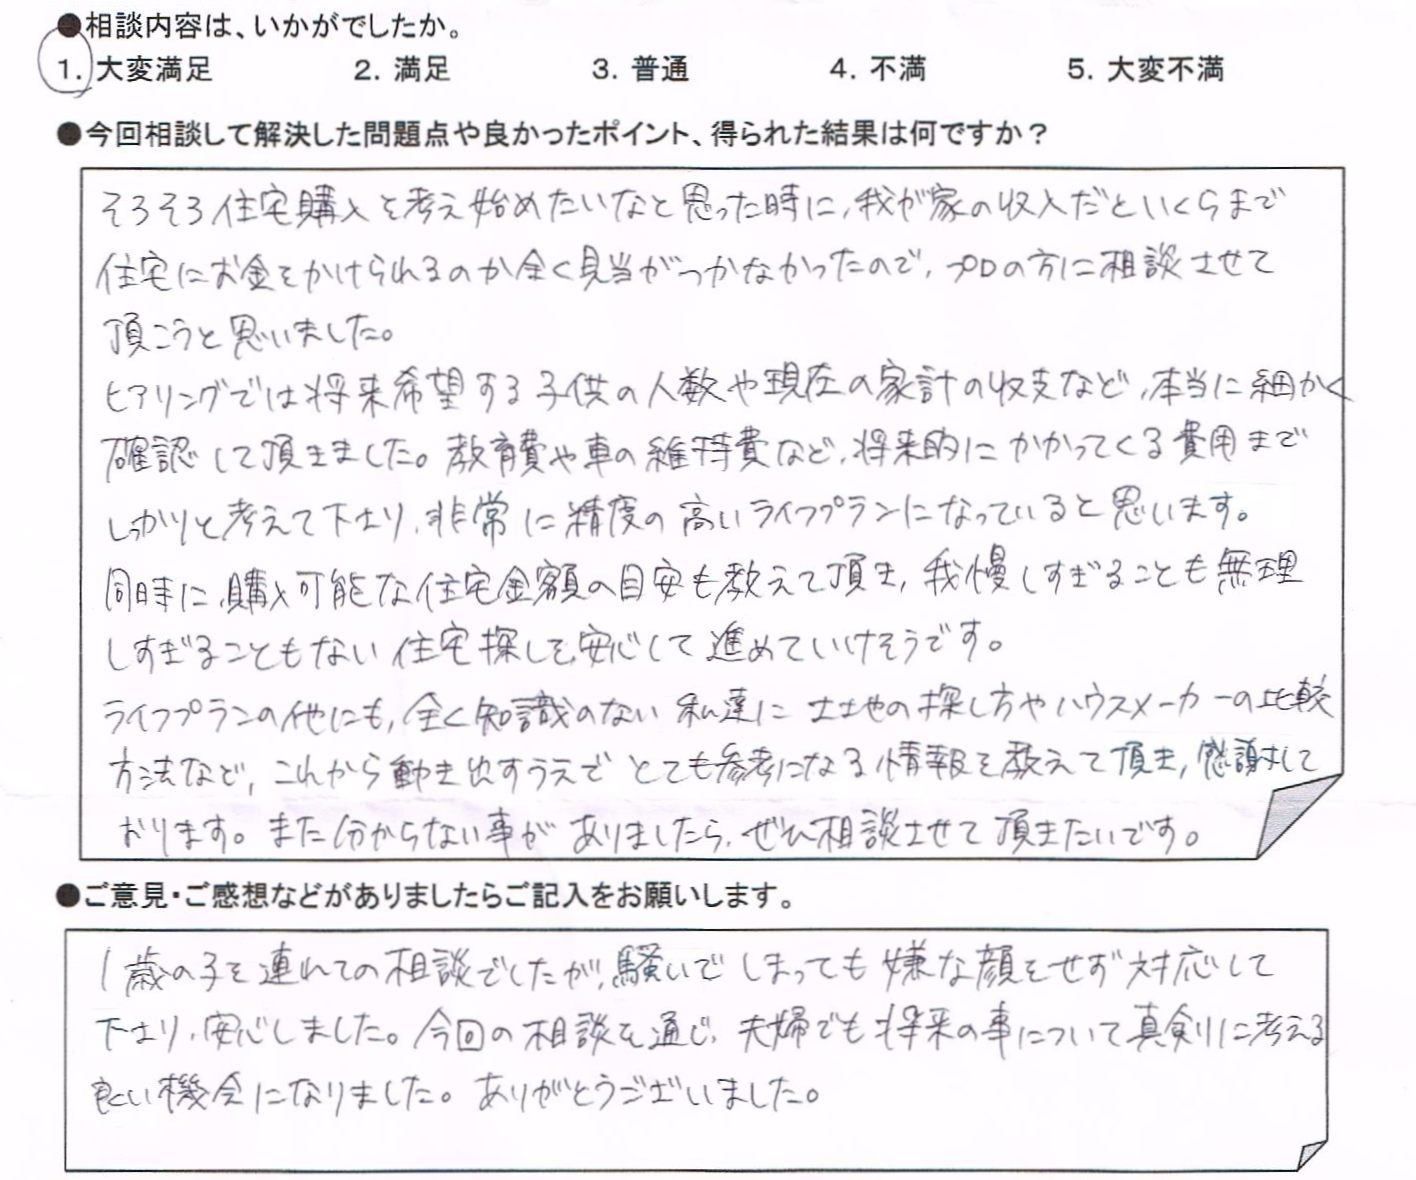 ●相談内容は、いかがでしたか。
1. 大変満足 2. 満足 3. 普通 4. 不満 5. 大変不満
●今回相談して解決した問題点や良かったポイント、得られた結果は何ですか？
そろそろ住宅購入を考え始めたいなと思った時に、我が家の収入だといくらまで
住宅にお金をかけられるのか全く見当がつかなかったので、プロの方に相談させて
頂こうと思いました。
ヒアリングでは将来希望する子供の人数や現在の家計の収支など、本当に細かく
確認して頂きました。教育費や車の維持費など、将来的にかかってくる費用まで
しっかりと考えて下さり、非常に精度の高いライフプランになっていると思います。
同時に、購入可能な住宅金額の目安も教えて頂き、我慢しすぎることも無理
しすぎることもない住宅探しを、安心して進めていけそうです。
ライフプランの他にも、全く知識のない私達に土地の探し方やハウスメーカーの比較
方法など、これから動き出すうえでとても参考になる情報を教えて頂き、感謝して
おります。また分からない事がありましたら、ぜひ相談させて頂きたいです。
●ご意見・ご感想などがありましたらご記入をお願いします。
1歳の子を連れての相談でしたが、騒いでしまっても嫌な顔をせず対応して
下さり、安心しました。今回の相談を通じ、夫婦でも将来の事について真剣に考える
良い機会になりました。ありがとうございました。